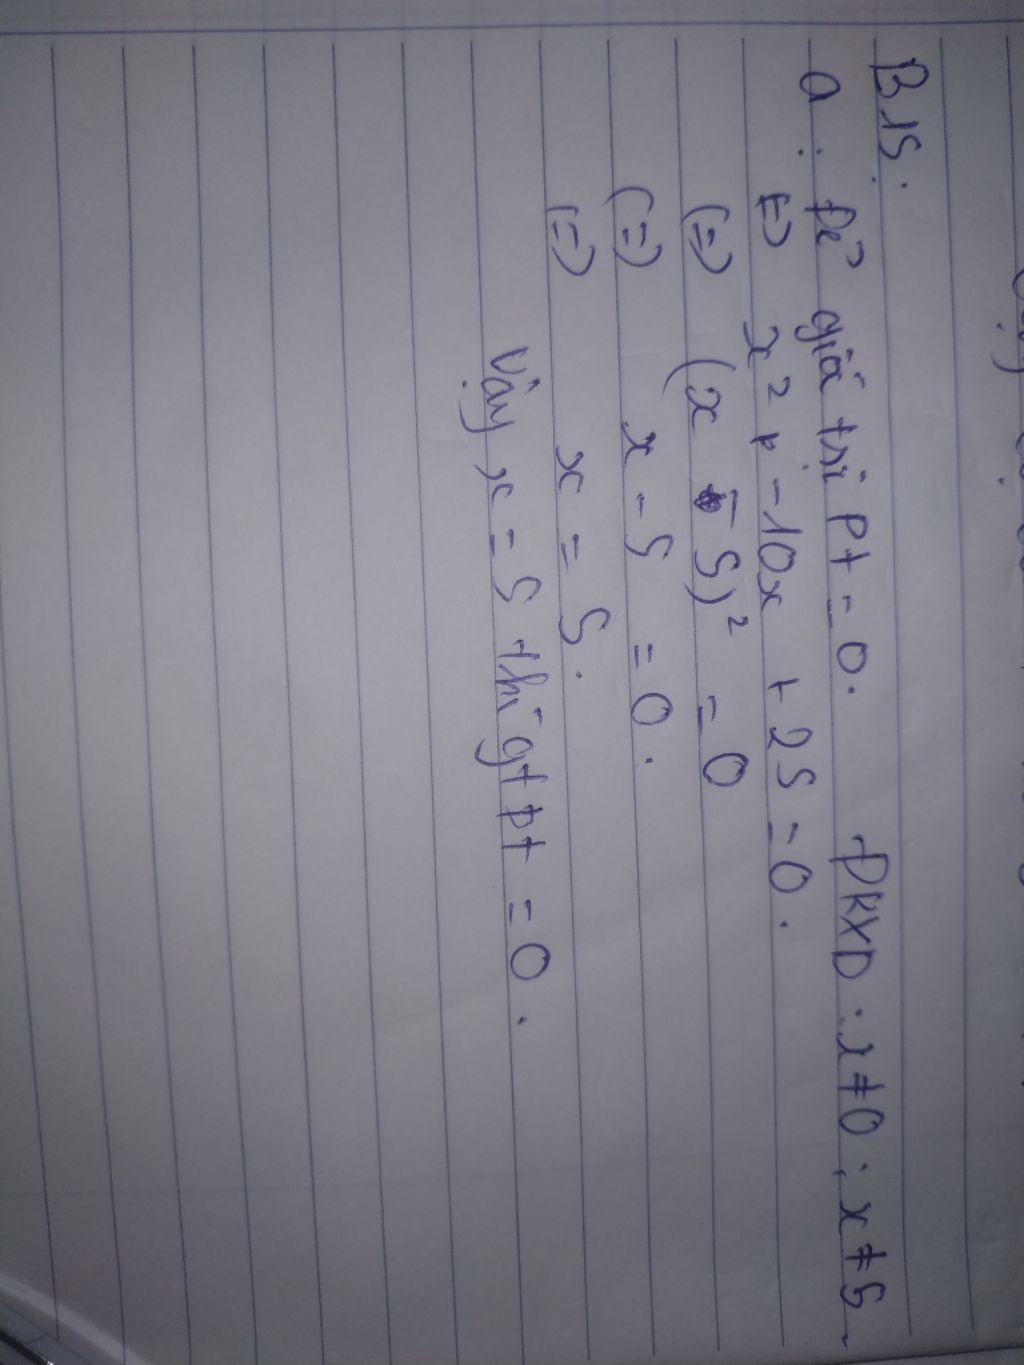 B15.
a. Để giá trị Pt = 0. ĐKXD: x ≠ 0; x ≠ 5
<=> x² - 10x + 25 = 0.
(=) (x - 5)² = 0
(=) x - 5 = 0.
(=) x = 5.
Vậy x = 5 thì gt pt = 0.